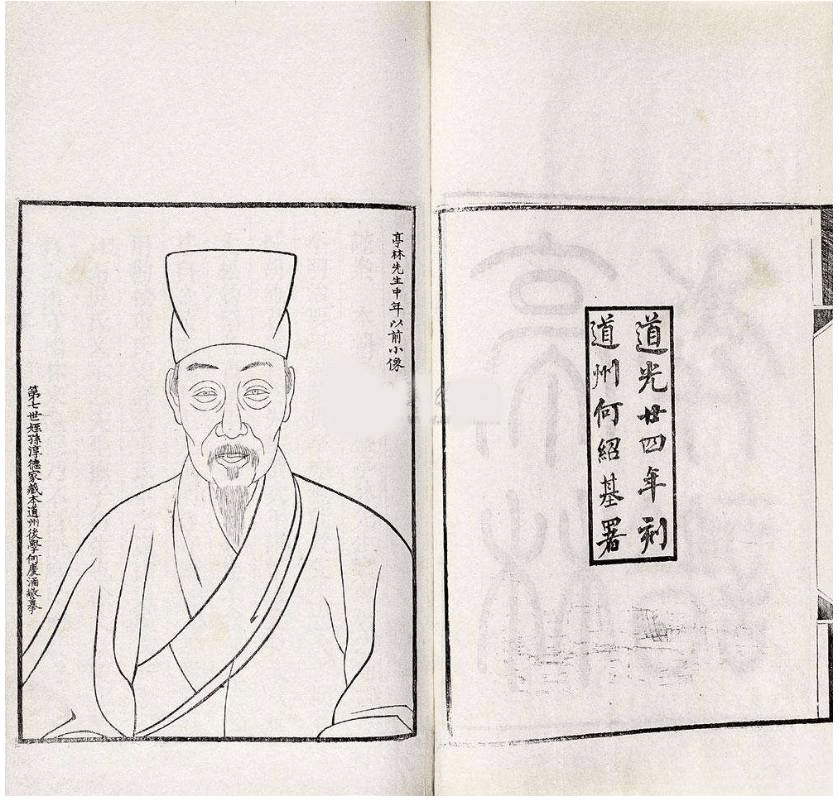 道光廿四年刻
道州何紹基署
亭林先生中年以前小像
第七世姪孫淳德家藏本道州後學何慶涵敬摹